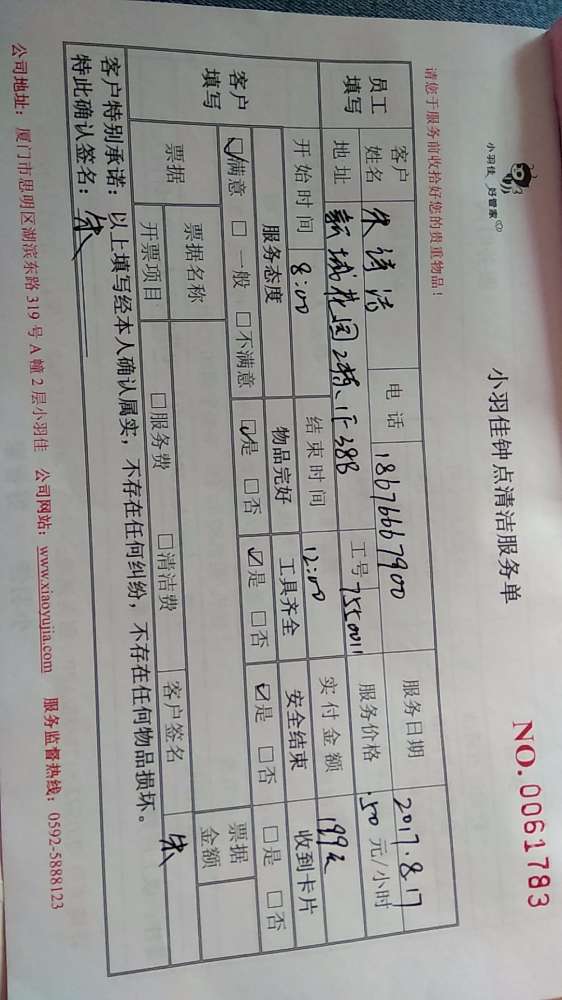 小羽佳 好管家
小羽佳钟点清洁服务单
NO.0061783
请您于服务前收拾好您的贵重物品！
员工填写
客户姓名 电话 18676667900 服务日期 2017.8.17
地址 新城花园2栋、 38B 工号 服务价格 50 元/小时
开始时间 8:00 结束时间 12:00 实付金额
客户填写
服务态度 物品完好 工具齐全 安全结束 收到卡片
☑满意 □一般 □不满意 ☑是 □否 ☑是 □否 ☑是 □否 □是 □否
票据 票据名称 票据金额
开票项目 □服务费 □清洁费 客户签名 朱
客户特别承诺：以上填写经本人确认属实，不存在任何纠纷，不存在任何物品损坏。
特此确认签名：朱
公司地址：厦门市思明区湖滨东路 319 号 A 幢 2 层小羽佳 公司网站：www.xiaoyujia.com 服务监督热线：0592-5888123